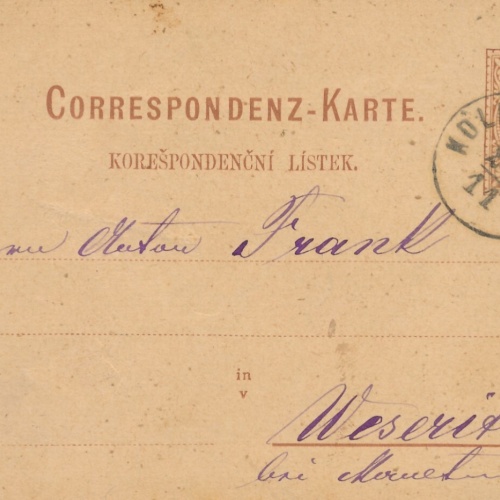 CORRESPONDENZ-KARTE.
KOREŠPONDENČNÍ LÍSTEK.
Anton Frank
in
v
Weserit
bei